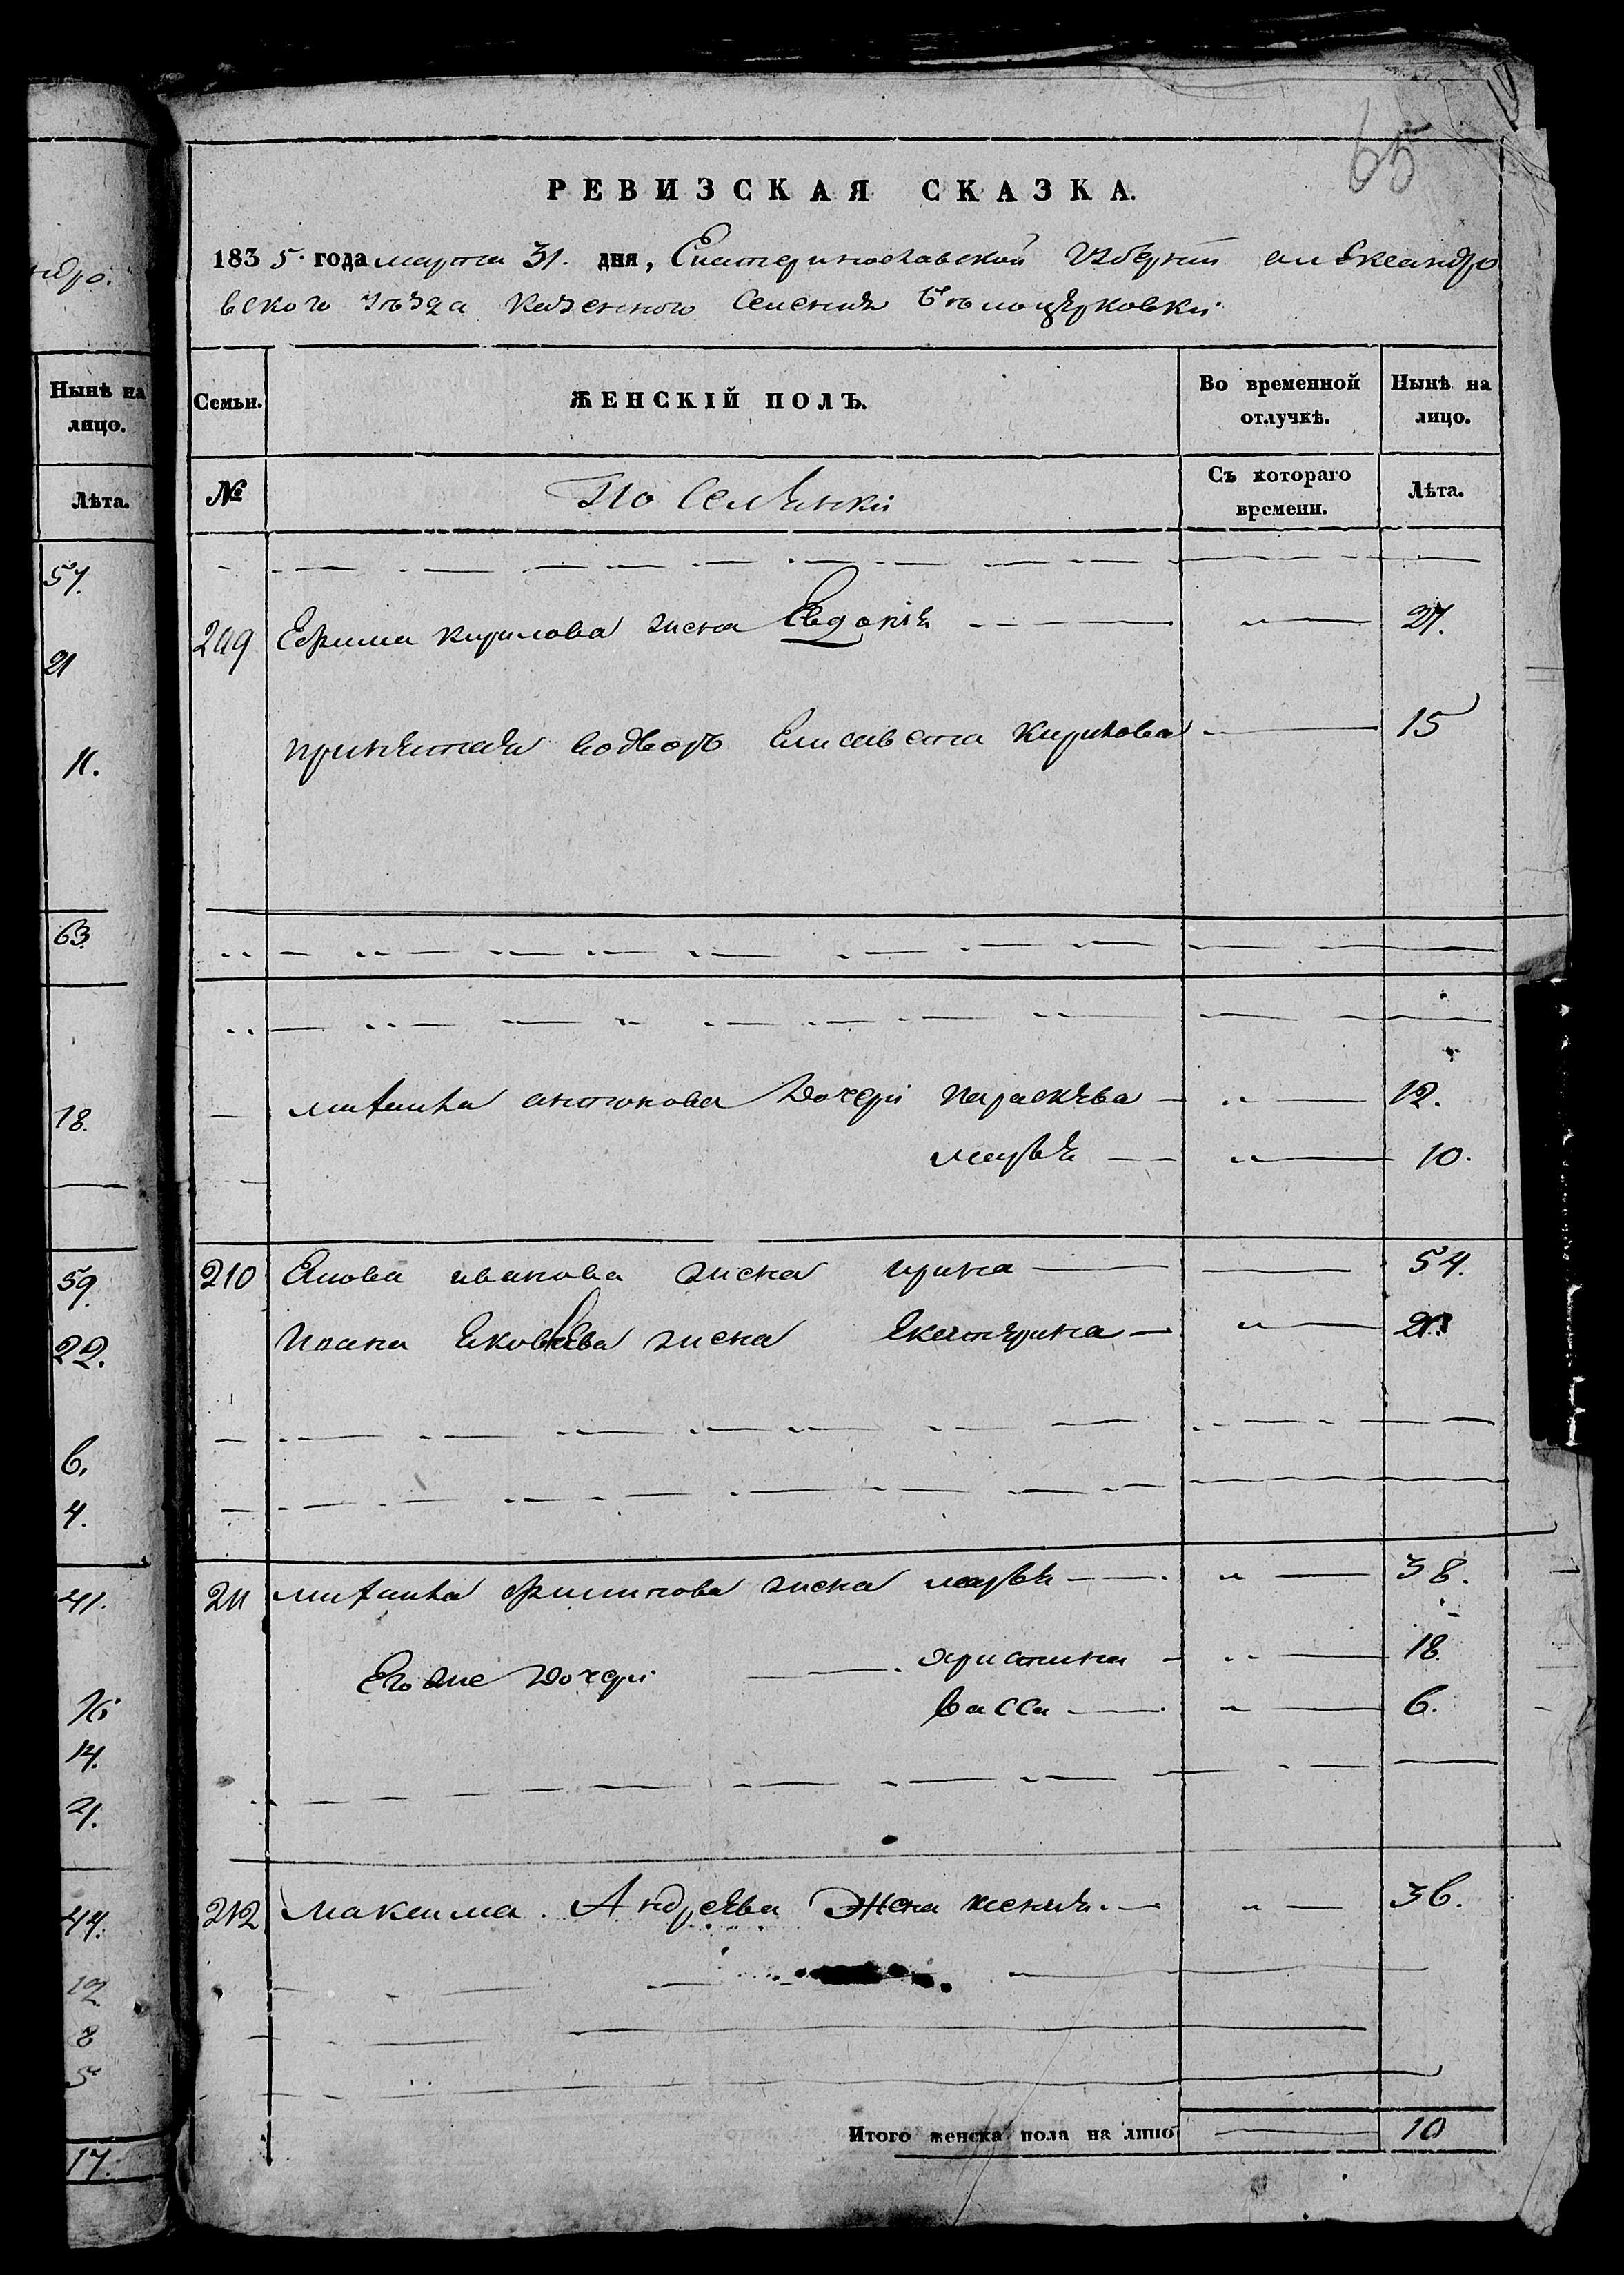 65
РЕВИЗСКАЯ СКАЗКА.
1835. года марта 31. дня, Екатеринославской Губерніи александро
вского уѣзда казенного Селенія Бѣлоцерковки
ндро.
Семьи.
ЖЕНСКІЙ ПОЛЪ.
Во временной отлучкѣ.
Нынѣ на лицо.
Нынѣ на лицо.
№
По Селянски
Съ котораго времени.
Лѣта.
Лѣта.
51.
209 Ефима кирилова жена Евдокія 21.
21
принятая водворъ Елисавета Кирилова 15
11.
63.
михаила антонова Дочери параскева 12.
18.
марѣя 10.
210 Якова иванова жена ирина 54.
59.
Ивана Яковлева жена Екатерина
22.
6.
4.
211 михаила филипова жена марѣя 38.
41.
Его же Дочери христина 18.
васса 6.
16
14.
212 максима Андреева Жена ксенія. 36.
44.
12
8
5
Итого женска пола на лицо 10
17.